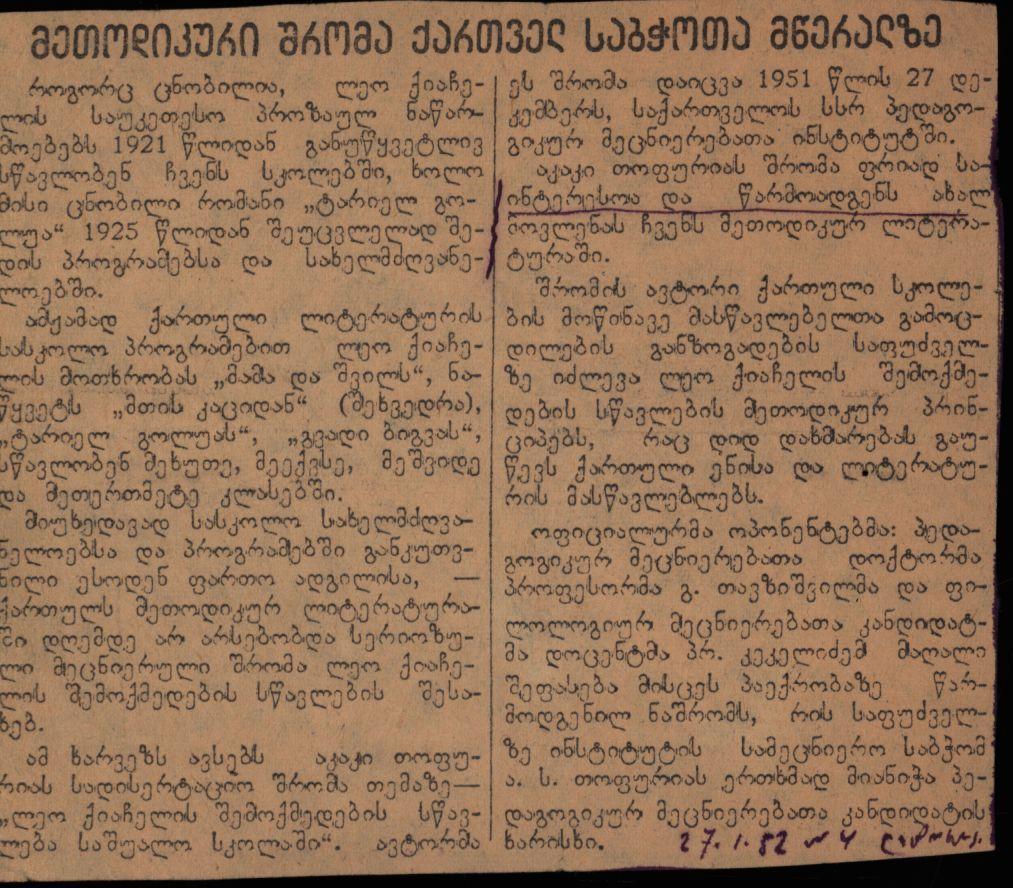 მეთოდიკური შრომა ქართველ საბჭოთა მწერალზე
როგორც ცნობილია, ლეო ქიაჩე-
ლის საუკეთესო პროზაულ ნაწარ-
მოებებს 1921 წლიდან განუწყვეტლივ
სწავლობენ ჩვენს სკოლებში, ხოლო
მისი ცნობილი რომანი „ტარიელ გო-
ლუა“ 1925 წლიდან შეუცვლელად შე-
დის პროგრამებსა და სახელმძღვანე-
ლოებში.
ამჟამად ქართული ლიტერატურის
სასკოლო პროგრამებით ლეო ქიაჩე-
ლის მოთხრობას „მამა და შვილს“, ნა-
წყვეტს „მთის კაციდან“ (შეხვედრა),
„ტარიელ გოლუას“, „გვადი ბიგვას“,
სწავლობენ მეხუთე, მეექვსე, მეშვიდე
და მეთერთმეტე კლასებში.
მიუხედავად სასკოლო სახელმძღვა-
ნელოებსა და პროგრამებში განკუთვ-
ნილი ესოდენ ფართო ადგილისა, —
ქართულს მეთოდიკურ ლიტერატურა-
ში დღემდე არ არსებობდა სერიოზუ-
ლი მეცნიერული შრომა ლეო ქიაჩე-
ლის შემოქმედების სწავლების შესა-
ხებ.
ამ ხარვეზს ავსებს აკაკი თოფუ-
რიას სადისერტაციო შრომა თემაზე—
„ლეო ქიაჩელის შემოქმედების სწავ-
ლება საშუალო სკოლაში“. ავტორმა
ეს შრომა დაიცვა 1951 წლის 27 დე-
კემბერს, საქართველოს სსრ პედაგო-
გიკურ მეცნიერებათა ინსტიტუტში.
აკაკი თოფურიას შრომა ფრიად სა-
ინტერესოა და წარმოადგენს ახალ
მოვლენას ჩვენს მეთოდიკურ ლიტერა-
ტურაში.
შრომის ავტორი ქართული სკოლე-
ბის მოწინავე მასწავლებელთა გამოც-
დილების განზოგადების საფუძველ-
ზე იძლევა ლეო ქიაჩელის შემოქმე-
დების სწავლების მეთოდიკურ პრინ-
ციპებს, რაც დიდ დახმარებას გაუ-
წევს ქართული ენისა და ლიტერატუ-
რის მასწავლებლებს.
ოფიციალურმა ოპონენტებმა: პედა-
გოგიკურ მეცნიერებათა დოქტორმა
პროფესორმა გ. თავზიშვილმა და ფი-
ლოლოგიურ მეცნიერებათა კანდიდატ-
მა დოცენტმა პრ. კეკელიძემ მაღალი
შეფასება მისცეს პაექრობაზე წარ-
მოდგენილ ნაშრომს, რის საფუძველ-
ზე ინსტიტუტის სამეცნიერო საბჭომ
ა. ს. თოფურიას ერთხმად მიანიჭა პე-
დაგოგიკურ მეცნიერებათა კანდიდატის
ხარისხი.
27. 1. 52 № 4